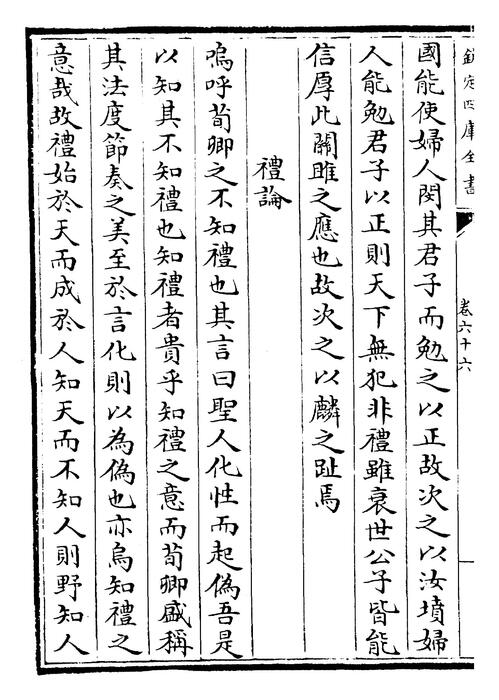 欽定四庫全書
卷六十六
國能使婦人閔其君子而勉之以正故次之以汝墳婦
人能勉君子以正則天下無犯非禮雖衰世公子皆能
信厚此關雎之應也故次之以麟之趾焉
禮論
嗚呼荀卿之不知禮也其言曰聖人化性而起偽吾是
以知其不知禮也知禮者貴乎知禮之意而荀卿盛稱
其法度節奏之美至於言化則以為偽也亦烏知禮之
意哉故禮始於天而成於人知天而不知人則野知人